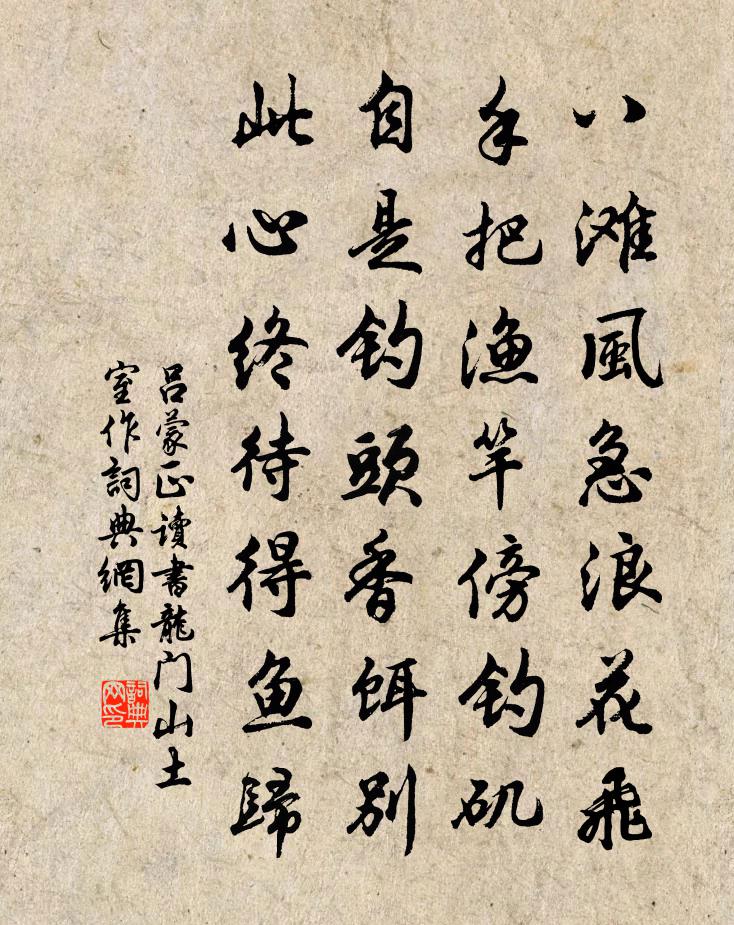 八滩風急浪花飛
手把漁竿傍钓矶
自是钓頭香饵别
此心終待得鱼歸
吕蒙正讀書龍门山土
室作詞典網集
詞典网印